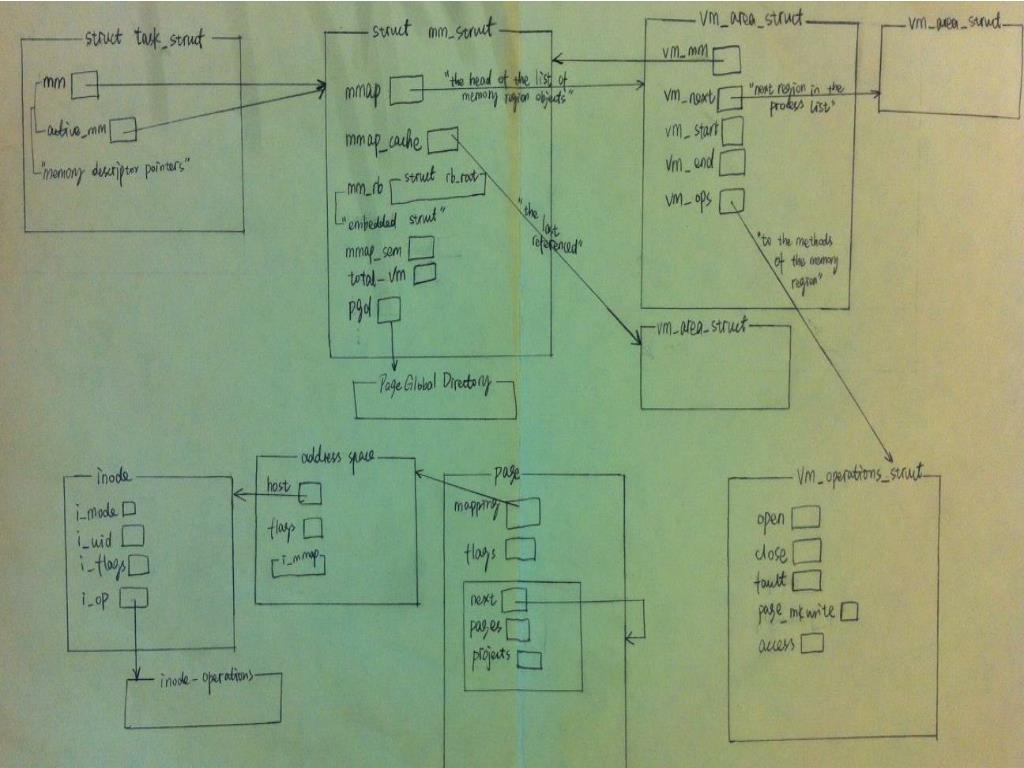 struct task_struct
mm
active_mm
"memory descriptor pointers"
struct mm_struct
mmap
"the head of the list of
memory region objects"
mmap_cache
"the last
referenced"
mm_rb
struct rb_root
"embedded struct"
mmap_sem
total_vm
pgd
Page Global Directory
vm_area_struct
vm_mm
vm_next
"next region in the
process list"
vm_start
vm_end
vm_ops
"to the methods
of the memory
region"
vm_area_struct
vm_area_struct
inode
i_mode
i_uid
i_flags
i_op
inode-operations
address space
host
flags
i_mmap
page
mapping
flags
next
pages
projects
vm_operations_struct
open
close
fault
page_mkwrite
access